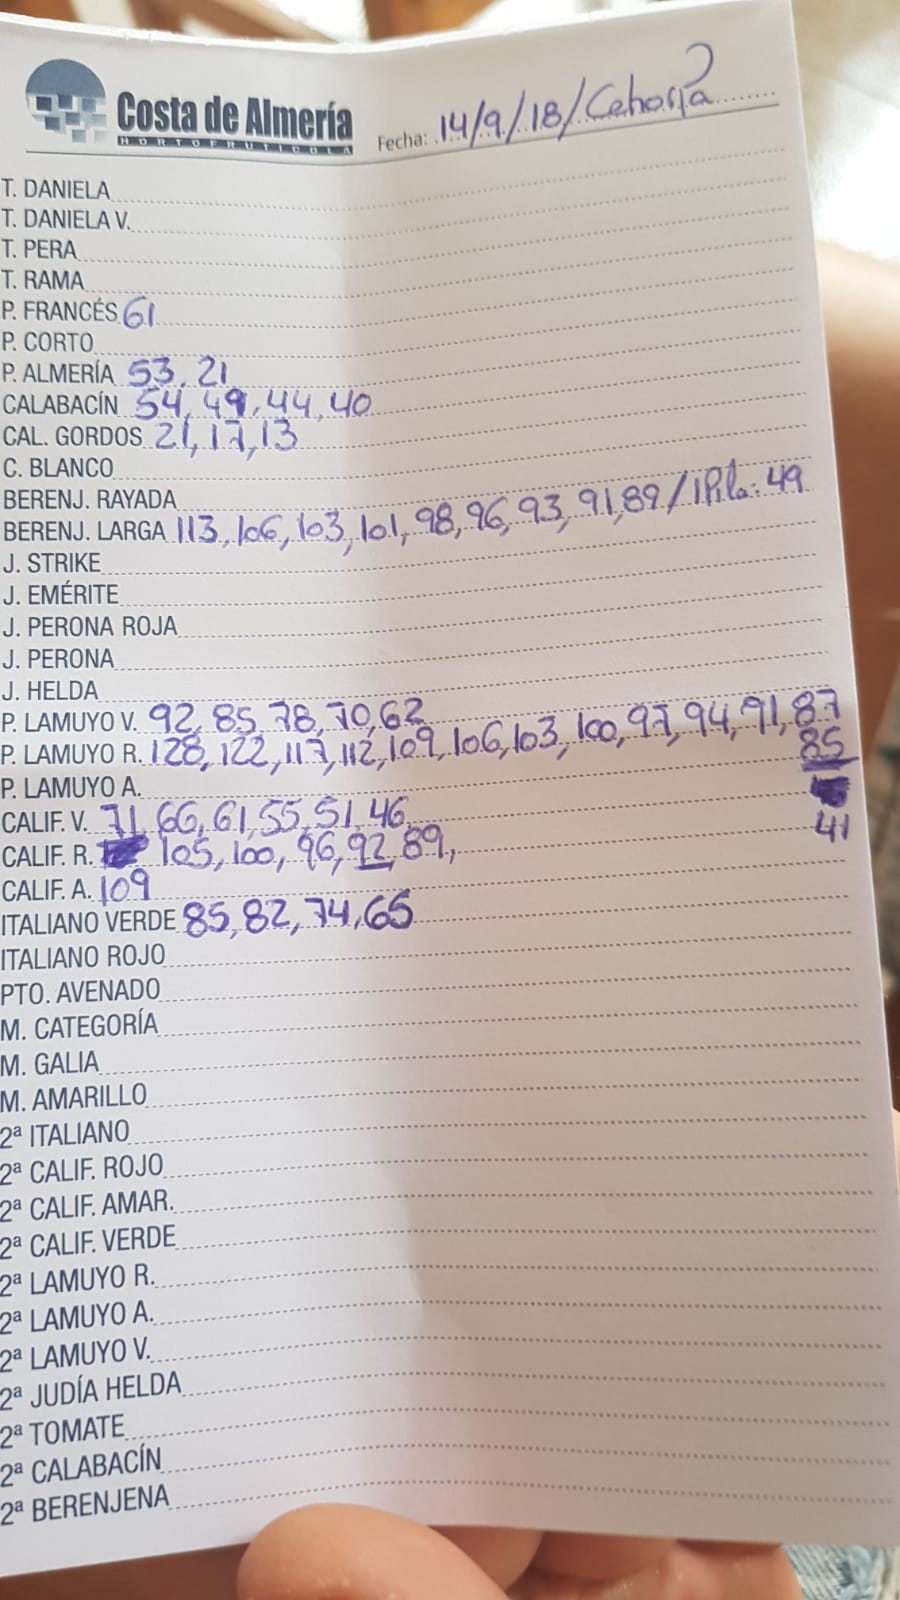 Costa de Almería
HORTOFRUTICOLA
Fecha: 14/9/18/
T. DANIELA
T. DANIELA V.
T. PERA
T. RAMA
P. FRANCÉS 61
P. CORTO
P. ALMERÍA 53, 21
CALABACÍN 54, 49, 44, 40
CAL. GORDOS 21, 17, 13
C. BLANCO
BERENJ. RAYADA
BERENJ. LARGA 113, 106, 103, 101, 98, 96, 93, 91, 89 / 1 Pila: 49
J. STRIKE
J. EMÉRITE
J. PERONA ROJA
J. PERONA
J. HELDA
P. LAMUYO V. 92, 85, 78, 70, 62
P. LAMUYO R. 128, 122, 117, 112, 109, 106, 103, 100, 97, 94, 91, 87
85
P. LAMUYO A.
CALIF. V. 71, 66, 61, 55, 51, 46,
41
CALIF. R. 105, 100, 96, 92, 89,
CALIF. A. 109
ITALIANO VERDE 85, 82, 74, 65
ITALIANO ROJO
PTO. AVENADO
M. CATEGORÍA
M. GALIA
M. AMARILLO
2ª ITALIANO
2ª CALIF. ROJO
2ª CALIF. AMAR.
2ª CALIF. VERDE
2ª LAMUYO R.
2ª LAMUYO A.
2ª LAMUYO V.
2ª JUDÍA HELDA
2ª TOMATE
2ª CALABACÍN
2ª BERENJENA